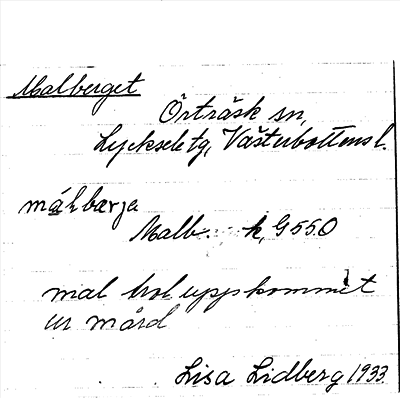 Malberget
Örträsk sn,
Lycksele tg, Västerbottens l.
måhbærja
Malb. k, G550
mal trol. uppkommet
ur mård
Lisa Lidberg 1933